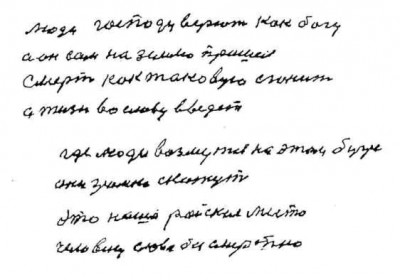 люди господу верют как богу
а он сам на землю пришел
смерт как таковую изгонит
а жизн во славу введет
где люди возмутся на этом бугре
они громко скажут
это наша райская место
человеку слова бессмертно